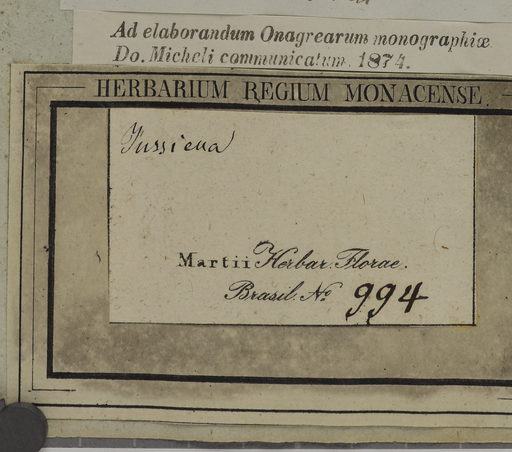 Ad elaborandum Onagrearum monographiæ
Do. Micheli communicatum. 1874.
HERBARIUM REGIUM MONACENSE.
Jussieua
Martii Herbar. Florae.
Brasil. No 994